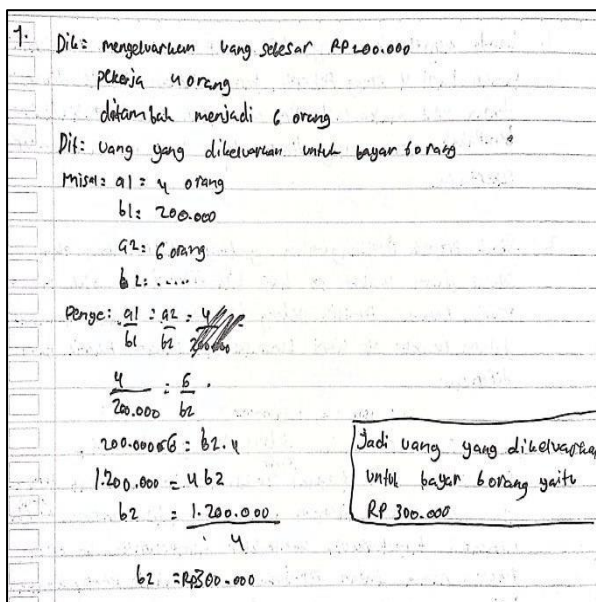 1. Dik: mengeluarkan uang sebesar RP 200.000
pekerja 4 orang
ditambah menjadi 6 orang
Dit: uang yang dikeluarkan untuk bayar 6 orang
Misal: a1 = 4 orang
b1 = 200.000
a2 = 6 orang
b2 = .....
Penye: a1/b1 = a2/b2 =
4/200.000 = 6/b2
200.000 6 = b2.4
1.200.000 = 4 b2
b2 = 1.200.000/4
b2 = Rp300.000
Jadi uang yang dikeluarkan
untuk bayar 6 orang yaitu
RP 300.000